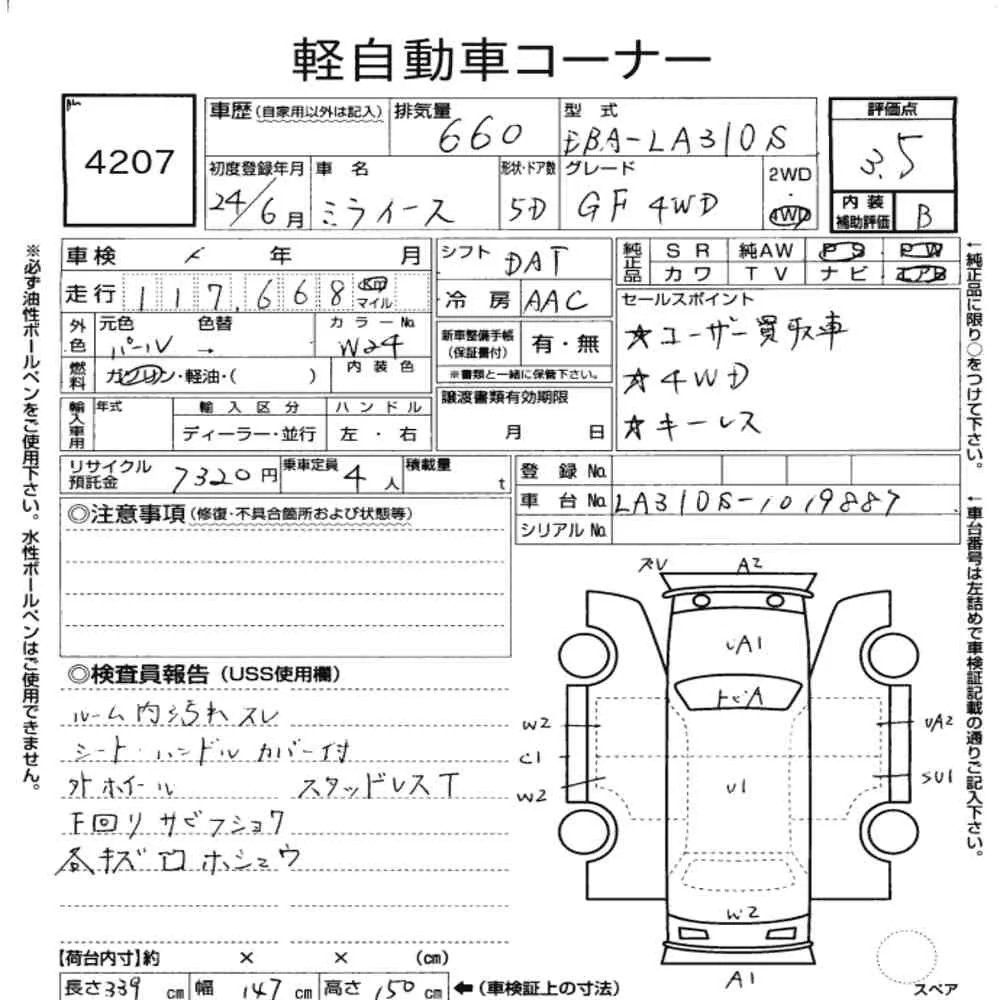 軽自動車コーナー
4207
車歴 (自家用以外は記入) 排気量 660 型式 DBA-LA310S 評価点 3.5
初度登録年月 24/6月 車名 ミライース 形状・ドア数 5D グレード GF 4WD 2WD・4WD
内装補助評価 B
車検 年 月 シフト DAT 純正品 SR 純AW PS PW
走行 117,668 km マイル 冷房 AAC カワ TV ナビ エアB
外色 元色 パール 色替 → カラーNo. W24
新車整備手帳 (保証書付) 有・無
※書類と一緒に保管下さい。
燃料 ガソリン・軽油・( ) 内装色
輸入車用 年式 輸入区分 ディーラー・並行 ハンドル 左・右
譲渡書類有効期限 月 日
セールスポイント
☆ユーザー買取車
☆4WD
☆キーレス
リサイクル預託金 7320円 乗車定員 4人 積載量 t
登録No.
車台No. LA310S-1019887
シリアルNo.
◎注意事項 (修復・不具合箇所および状態等)
◎検査員報告 (USS使用欄)
ルーム内汚れ スレ
シート・ハンドル カバー付
外ホイール スタッドレスT
下回り サビフショク
各キズ凹 ホシュウ
ズレ A2
UA1
トビA
W2 UA2
C1
W2 U1 SU1
W2
A1
スペア
【荷台内寸】約 × × (cm)
長さ 339 cm 幅 147 cm 高さ 150 cm ←(車検証上の寸法)
※必ず油性ボールペンをご使用下さい。水性ボールペンはご使用できません。
←純正品に限り○をつけて下さい。
←車台番号は左詰めで車検証記載の通りご記入下さい。